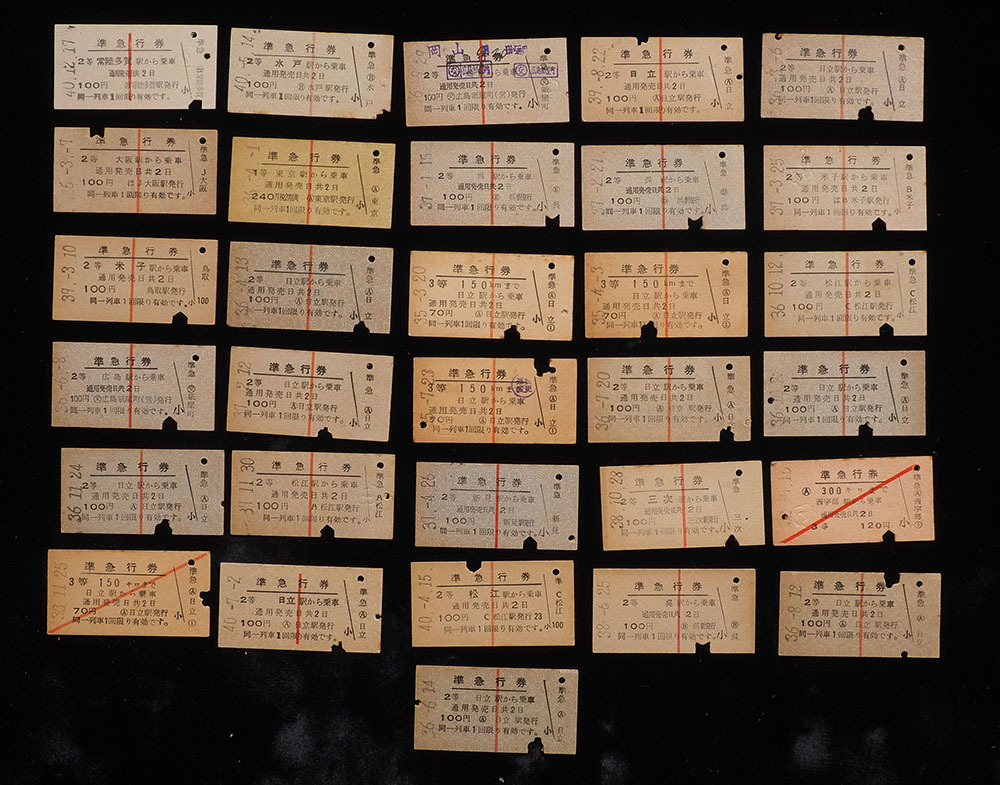 40.12.17
準急行券
2等 常陸多賀駅から乗車
通用発売日共2日
100円
同一列車1回限り有効です。
小
準急
40.-5.14
準急行券
2等 水戸駅から乗車
通用発売日共2日
100円 Ⓑ水戸駅発行
同一列車1回限り有効です。
準急
岡山
2等
通用発売日共2日
100円 広島紙屋町(営)発行
同一列車1回限り有効です。
39.-8.22
準急行券
2等 日立駅から乗車
通用発売日共2日
100円 Ⓐ日立駅発行
同一列車1回限り有効です。小
準急Ⓐ日立
準急行券
2等 日立駅から乗車
通用発売日共2日
100円 Ⓐ日立駅発行
同一列車1回限り有効です。小
準急Ⓐ日立
6.-3.-7
準急行券
2等 大阪駅から乗車
通用発売日共2日
100円 はJ大阪駅発行
同一列車1回限り有効です。
準急 J大阪
準急行券
1等 東京駅から乗車
通用発売日共2日
240円 Ⓐ東京駅発行
同一列車1回限り有効です。
準急Ⓐ東京
37.-1.15
準急行券
2等 呉駅から乗車
通用発売日共2日
100円 呉駅発行
同一列車1回限り有効です。小
準急 呉
37.-2.21
準急行券
2等 呉駅から乗車
通用発売日共2日
100円 呉駅発行
同一列車1回限り有効です。小
準急 呉
37.-3.25
準急行券
2等 米子駅から乗車
通用発売日共2日
100円 はB米子駅発行
同一列車1回限り有効です。
準急 B米子
39.-3.10
準急行券
2等 米子駅から乗車
通用発売日共2日
100円 鳥取駅発行
同一列車1回限り有効です。小100
鳥取
準急行券
2等 日立駅から乗車
通用発売日共2日
100円 Ⓐ日立駅発行
同一列車1回限り有効です。小
準急Ⓐ日立
35.-3.20
準急行券
3等 150kmまで
日立駅から乗車
通用発売日共2日
70円 Ⓐ日立駅発行
同一列車1回限り有効です。小
準急Ⓐ日立①
35.-4.-3
準急行券
3等 150kmまで
日立駅から乗車
通用発売日共2日
70円 Ⓐ日立駅発行
同一列車1回限り有効です。小
準急Ⓐ日立①
36.10.12
準急行券
2等 松江駅から乗車
通用発売日共2日
100円 C松江駅発行
同一列車1回限り有効です。小
準急 C松江
準急行券
2等 広島駅から乗車
通用発売日共2日
100円 広島紙屋町(営)発行
同一列車1回限り有効です。小
準急 紙屋町
準急行券
2等 日立駅から乗車
通用発売日共2日
100円 Ⓐ日立駅発行
同一列車1回限り有効です。小
準急 Ⓐ日立
準急行券
3等 150kmまで
日立駅から乗車
通用発売日共2日
70円 Ⓐ日立駅発行
同一列車1回限り有効です。小
準急Ⓐ日立①
36.-7.20
準急行券
2等 日立駅から乗車
通用発売日共2日
100円 Ⓐ日立駅発行
同一列車1回限り有効です。小
準急 Ⓐ日立
準急行券
2等 日立駅から乗車
通用発売日共2日
100円 Ⓐ日立駅発行
同一列車1回限り有効です。小
準急 Ⓐ日立
36.11.24
準急行券
2等 日立駅から乗車
通用発売日共2日
100円 Ⓐ日立駅発行
同一列車1回限り有効です。小
準急 Ⓐ日立
37.11.30
準急行券
2等 松江駅から乗車
通用発売日共2日
100円 A松江駅発行
同一列車1回限り有効です。小
準急 A松江
37.-4.26
準急行券
2等 新見駅から乗車
通用発売日共2日
100円 新見駅発行
同一列車1回限り有効です。小
準急 新見
38.10.28
準急行券
2等 三次駅から乗車
通用発売日共2日
100円 三次駅発行
同一列車1回限り有効です。小
準急 三次
準急行券
Ⓐ 300キロまで
西宇部駅から乗車
通用発売日共2日
3等 120円
準急Ⓐ西宇部①
33.11.25
準急行券
3等 150キロまで
日立駅から乗車
通用発売日共2日
70円 Ⓐ日立駅発行
同一列車1回限り有効です。
準急Ⓐ日立①
40.-7.-2
準急行券
2等 日立駅から乗車
通用発売日共2日
100円 Ⓐ日立駅発行
同一列車1回限り有効です。小
準急Ⓐ日立
40.-4.15
準急行券
2等 松江駅から乗車
通用発売日共2日
100円 C松江駅発行23
同一列車1回限り有効です。小100
準急 C松江
38.-6.25
準急行券
2等 呉駅から乗車
通用発売日共2日
100円 呉駅発行
同一列車1回限り有効です。小
準急 呉
36.-8.12
準急行券
2等 日立駅から乗車
通用発売日共2日
100円 Ⓐ日立駅発行
同一列車1回限り有効です。小
準急 Ⓐ日立
36.-6.14
準急行券
2等 日立駅から乗車
通用発売日共2日
100円 Ⓐ日立駅発行
同一列車1回限り有効です。小
準急 Ⓐ日立